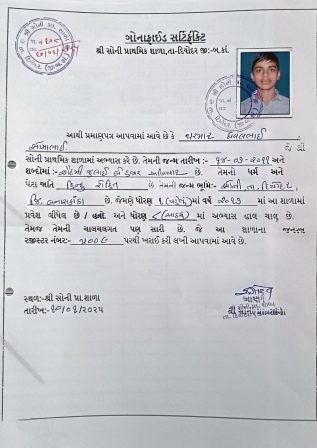 બોનાફાઈડ સર્ટિફીકેટ
શ્રી સોની પ્રાથમિક શાળા,તા-દિયોદર જી:-બ.કાં.
આથી પ્રમાણપત્ર આપવામાં આવે છે કે પરમાર
સોની પ્રાથમિક શાળામાં અભ્યાસ કરે છે. તેમની જન્મ તારીખ:- ૧૪-૦૭-૨૦૧૧ અને
શબ્દોમાં:- તેમનો ધર્મ અને
પેટા જાતિ હિન્દુ છે. તેમની જન્મ ભૂમિ:- સોની તા. દિયોદર,
જિ. બનાસકાંઠા છે. જેમણે ધોરણ ૧ (પહેલું) માં વર્ષ ૨૦૧૭ માં આ શાળામાં
પ્રવેશ લીધેલ છે / હતો. અને ધોરણ ૮ (આઠમું) માં અભ્યાસ હાલ ચાલુ છે.
તેમજ તેમની ચાલચલગત પણ સારી છે. જે આ શાળાના જનરલ
રજીસ્ટર નંબર:- ૧૦૦૬ પરથી ખરાઈ કરી લખી આપવામાં આવે છે.
સ્થળ:-શ્રી સોની પ્રા.શાળા
તારીખ:-